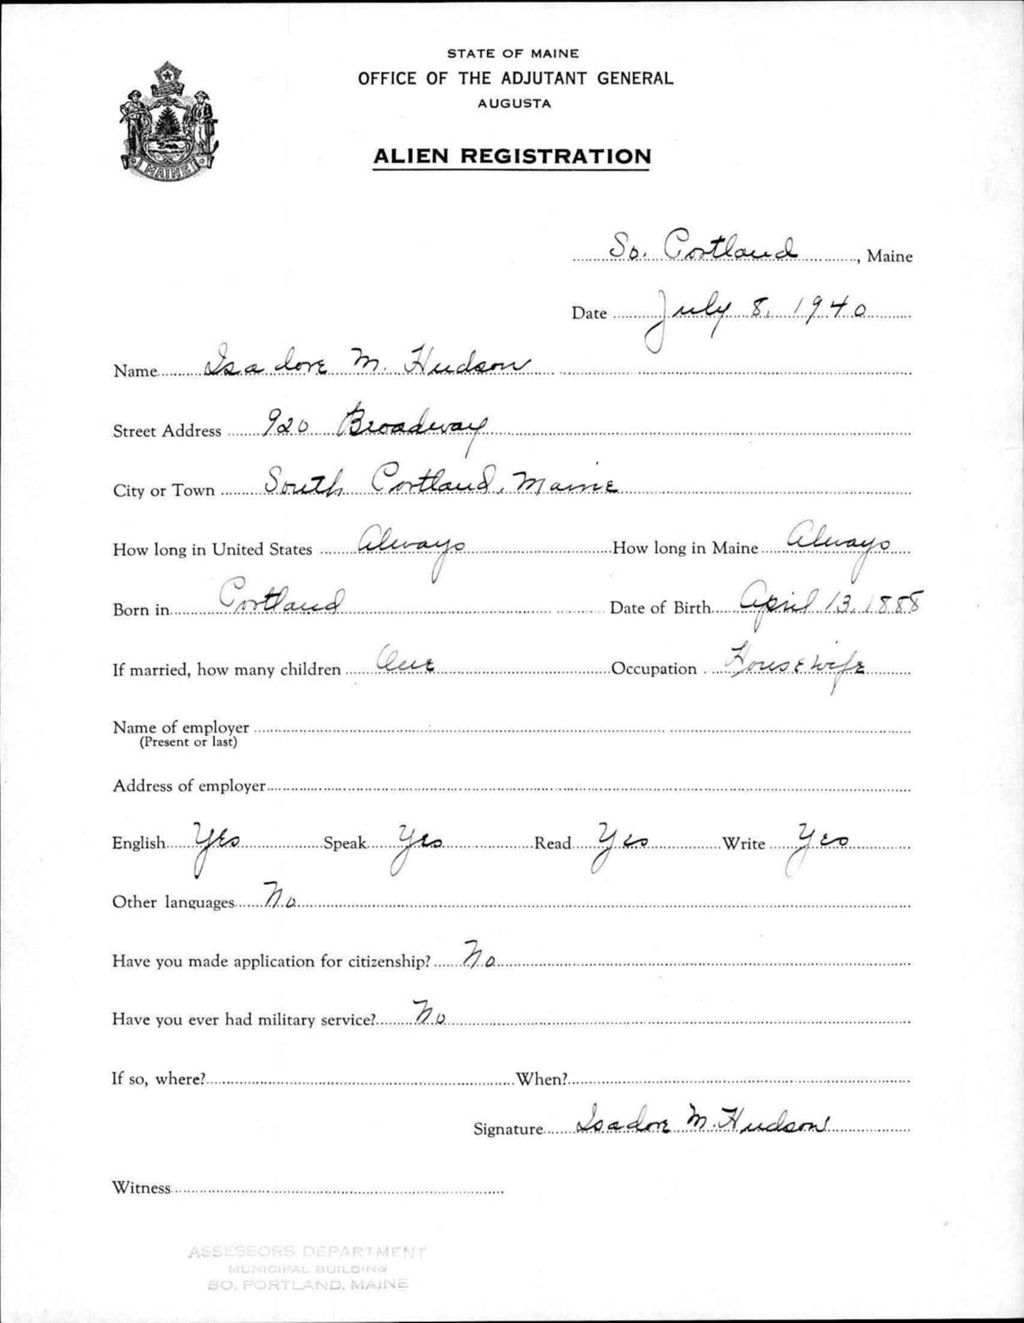 STATE OF MAINE
OFFICE OF THE ADJUTANT GENERAL
AUGUSTA
ALIEN REGISTRATION
MAINE
So. Portland, Maine
Date July 8, 1940
Name Isadore M. Hudson
Street Address 920 Broadway
City or Town South Portland, Maine
How long in United States Always How long in Maine Always
Born in Portland Date of Birth April 13, 1888
If married, how many children One Occupation Housewife
Name of employer
(Present or last)
Address of employer
English Yes Speak Yes Read Yes Write Yes
Other languages No
Have you made application for citizenship? No
Have you ever had military service? No
If so, where? When?
Signature Isadore M. Hudson
Witness
ASSESSORS DEPARTMENT
MUNICIPAL BUILDING
SO. PORTLAND, MAINE